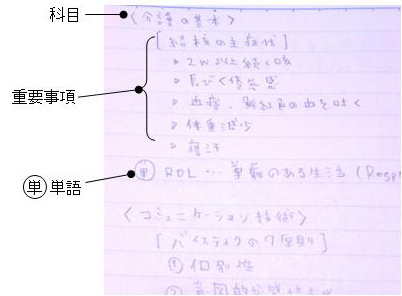 科目
<介護の基本>
[結核の主症状]
▹2W以上続く咳
▹長びく倦怠感
重要事項
▹血痰、鮮紅色の血を吐く
▹体重減少
▹寝汗
単 単語
単 RDL…尊厳のある生活(Resp
<コミュニケーション技術>
[バイスティクの7原則]
①個別性
②意図的な感情表出